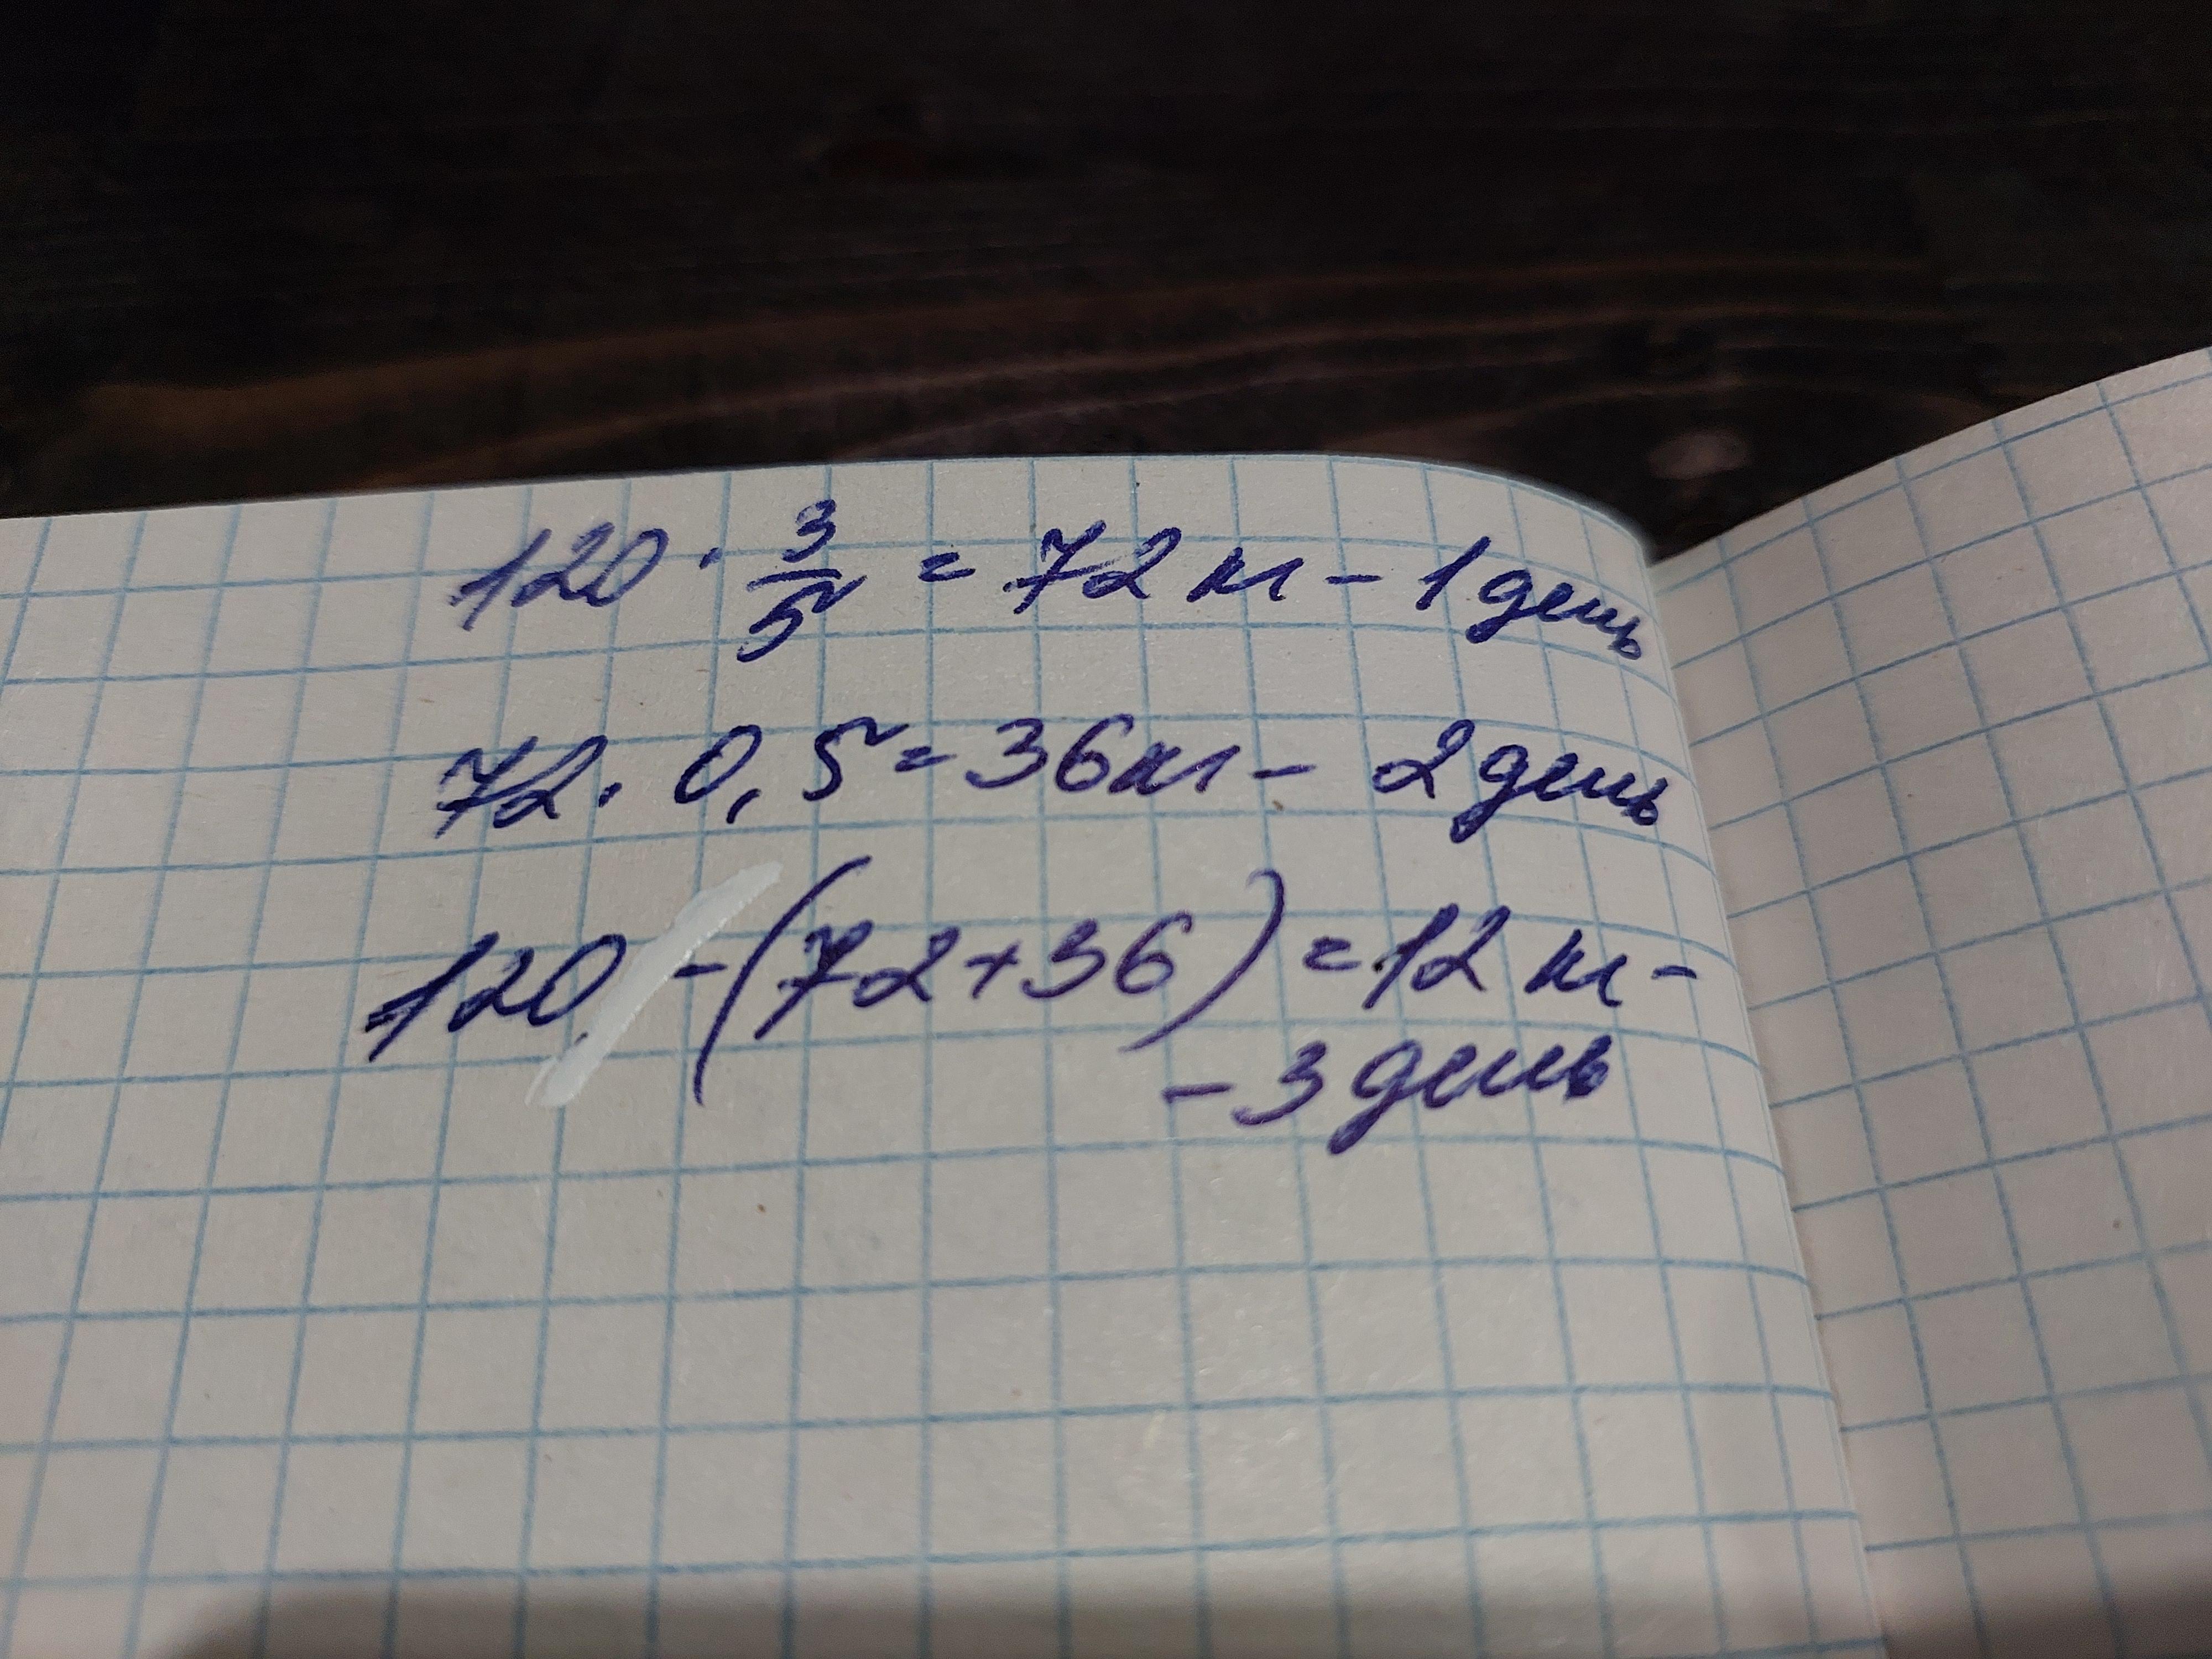 120 · 3/5 = 72 кг - 1 день
72 · 0,5 = 36 кг - 2 день
120 - (72 + 36) = 12 кг -
- 3 день